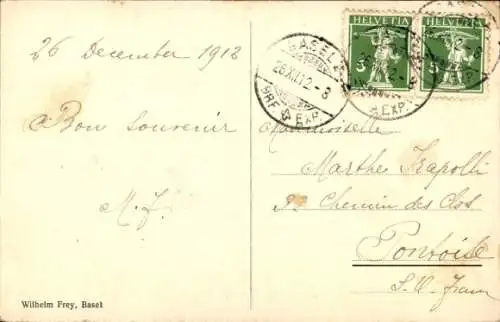 26 December 1912
Bon souvenir
M. F.
Wilhelm Frey, Basel
BASEL
26.XII.12-8
BRF. EXP.
HELVETIA
5
HELVETIA
5
EXP.
Mademoiselle
Marthe Trapolli
Chemin des
Pontoise
S. & O. France